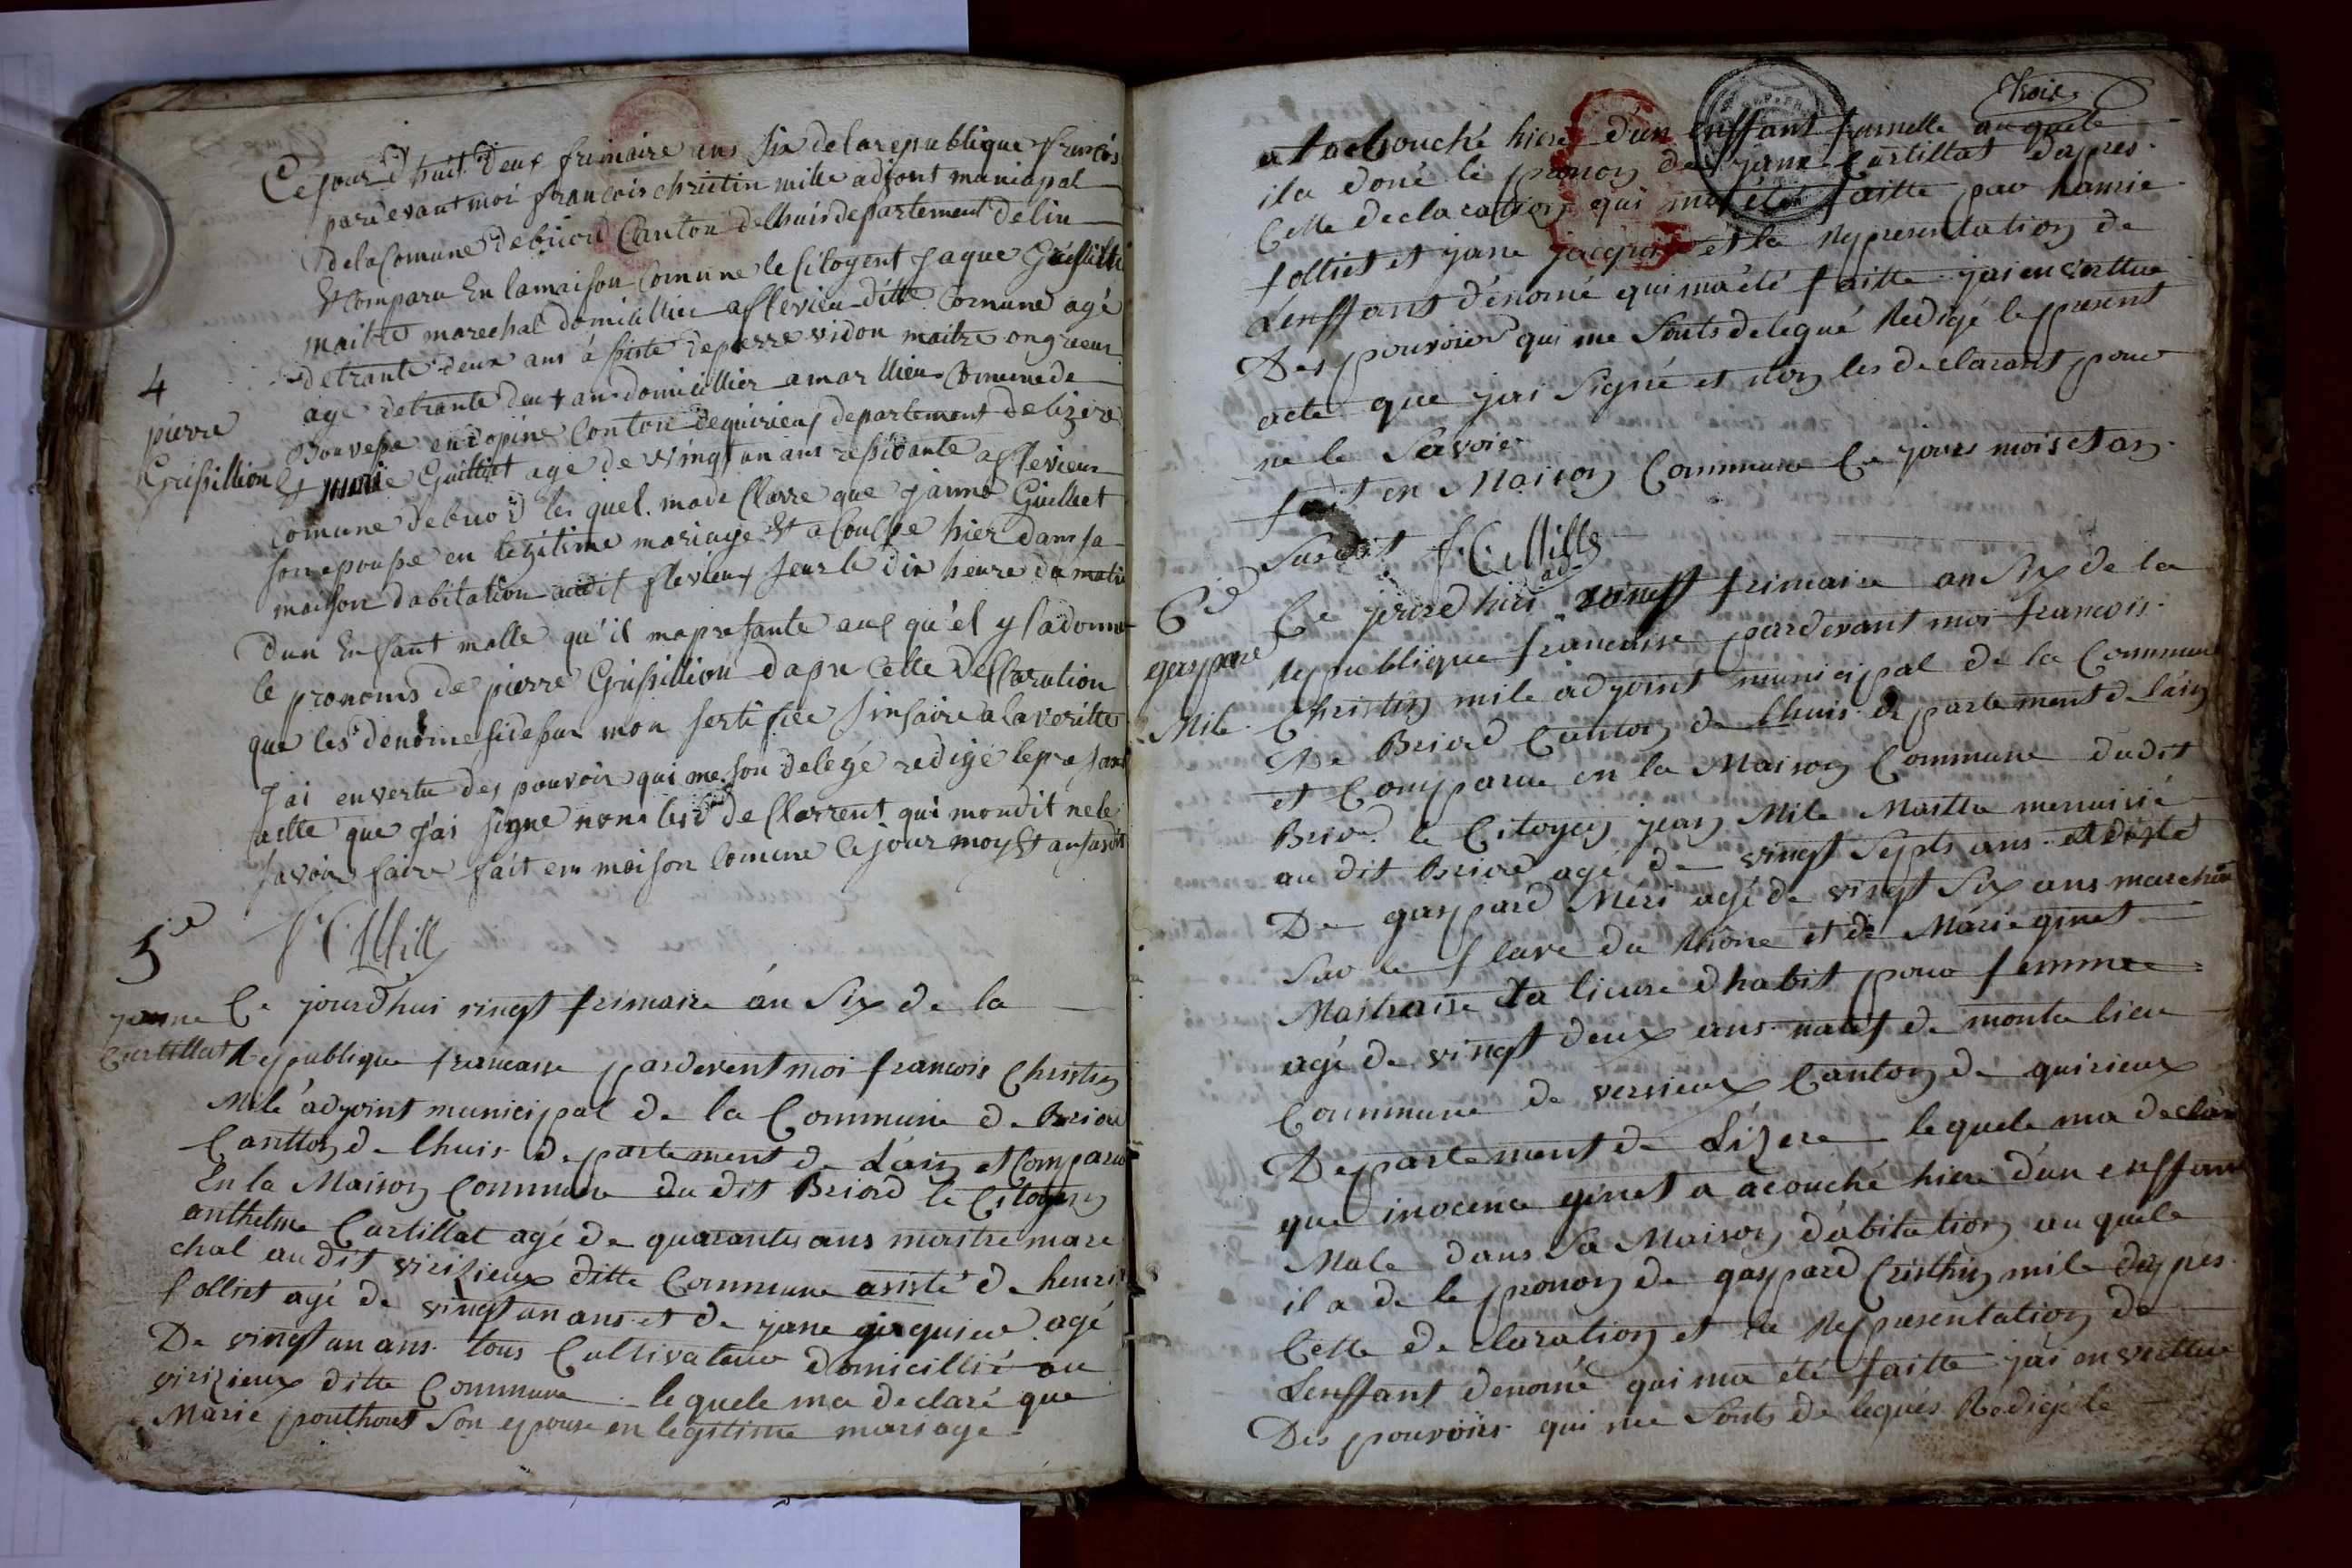 4
pierre
Grisillion
Ce jourd'huit deux frimaire ens six de la republique francois
pardevant moi francois christin mille adjont municipal
de la Comune de briord Canton de lhuis departement de lin
Et Comparu En la maison Comune le Sitoyent Jaque
maitre marechal domicillier a flevieu ditte Comune agé
de trante deux ans a siste de pierre vidon maitre ongreur
age de trante deux an domicillier a marllieu Comune de
Bouvesse en dopine Conton de quirieux departement de lizere
Et marie Guilliet age de vingt un ans residante a flevieux
Comune de briord les quel. ma de Clarre que janne Guilliet
son epousse en legitime mariage Et a Couche hier dans sa
maison dabitation audit flevieux seur le dix heure du matin
Dun Enfant malle qu'il ma presante aux qu'el y la donne
le pronoms de pierre Grisillion dapre Cette de Claration
que les denome si desus mon sertifiee sinsaire a la veritte
J'ai en vertu des pouvoir qui me son delegé redige le presant
actte que J'ai signe non les de Clarrent qui mon dit ne le
savoir faire fait em maison Comune le jour moy Et an susdit
F. C. Mille
5e
janne
Cartillat
Ce jourd'hui vingt frimaire án Six de la
Republique francaise pardevent moi francois Christin
Mile adjoint municipal de la Commune de Briord
Cantton de lhuis departement de Láin et Comparu
En la Maison Commune du dit Briord le Citoyen
anthelme Cartillat agé de quarantes ans mestre mare
chal au dit virizieux ditte Commune asisté de henri
folliet agé de vingt un ans et de jane jaquier agé
De vingt un ans tous Cultivateur domicillié au
virizieux ditte Commune le quele ma declaré que
Marie pouthout Son epouse en legitime mariage
Trois
at acbouché hiere d'un enffant famelle au quele
il a doné le pronon de jane Cartillat dápres
Cette declaration qui má été faitte par hanrie
folliet et jane jacquier et la Representation de
Lenffant dénomé qui má été faitte jai en verttue
Des pouvoier qui me Sonts delegué Redigé le present
acte que jai Signé et non les declarant pour
ne le Savoier
fait en Maison Commune Ce jours mois et an
Susdit F. C. Mille
ad
6e
gaspare
Mile
Ce jourd'hui vingt frimaire an Six de la
Republique francaise pardevant moi francois
Christin mile adjoint municipal de la Commune
De Briord Canton de Lhuis departement de láin
et Comparue en la Maison Commune dudit
Briord le Citoyen jean Mile Maittre menuisié
au dit Briord agé de vingt Septs ans asisté
De gaspard Méri agé de vingt Six ans marchan
Sur le flave du Rhône et de Marie ginet
Maitraise ta lieure dhabit pour femme
agé de vingt deux ans natif de monta lieu
Commune de versieux Canton de quirieux
Departement de Lizere le quele ma declare
que inocence ginet a acouché hiere d'un enffan
Male dans Sa Maison d'abitation au quele
il a de le pronon de gaspard Cristhin mile dapres
Cette declaration et la Representation de
Lenffant denomé qui ma été faitte jai en verttue
Des pouvoirs qui me Sonts delegués Redigé le